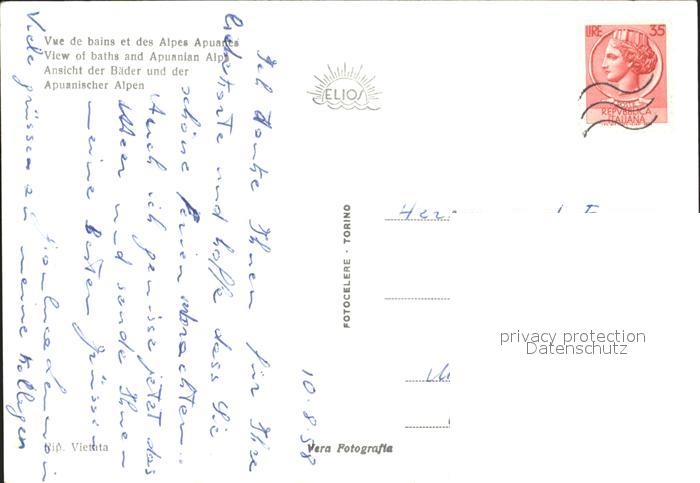 Vue de bains et des Alpes Apuanes
View of baths and Apuanian Alps
Ansicht der Bäder und der
Apuanischer Alpen
ELIOS
LIRE 35
POSTE
REPVBBLICA
ITALIANA
10.8.58
Ich danke Ihnen für Ihre
liebe Karte und hoffe dass Sie
schöne Ferien verbrachten.
Auch ich geniesse jetzt das
Meer und sende Ihnen
meine besten Grüsse
Viele Grüsse an meine Kollegen
FOTOCELERE - TORINO
Herr
privacy protection
Datenschutz
Rip. Vietata
Vera Fotografia